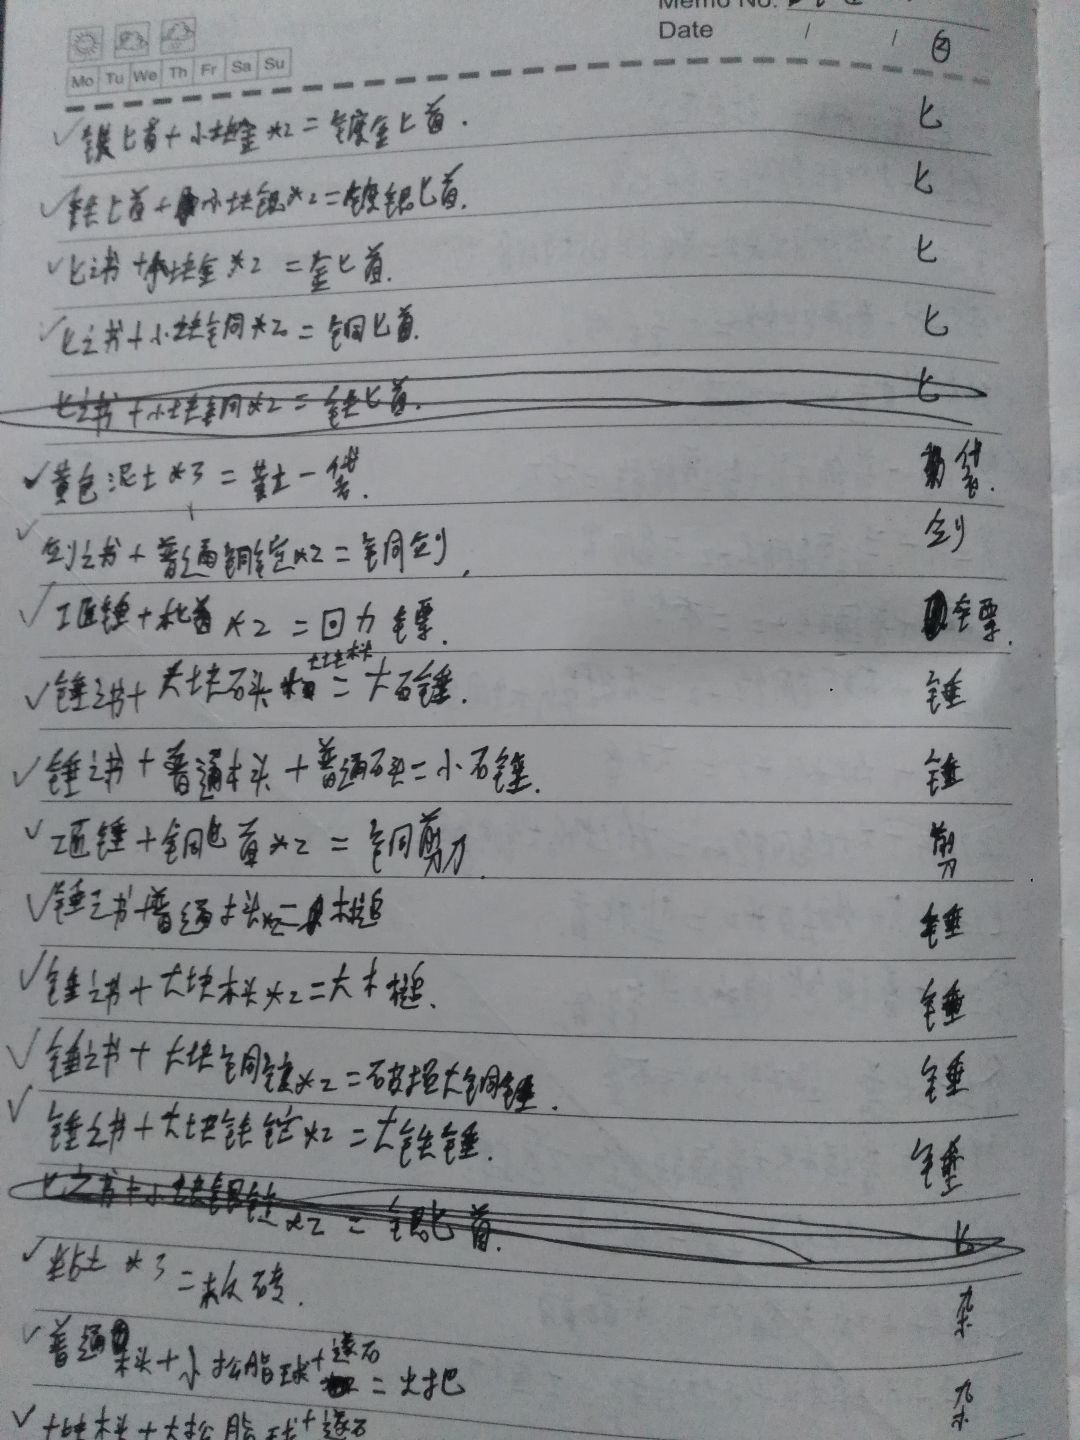 Memo No.
Date / / ②
Mo Tu We Th Fr Sa Su
✓铁匕首+小块金*2=镀金匕首. 匕
✓铁匕首+小块银*2=镀银匕首. 匕
✓匕之书+小块金*2=金匕首. 匕
✓匕之书+小块铜*2=铜匕首. 匕
匕之书+小块铜*2=铁匕首. 匕
✓黄色泥土*3=黄土一袋. 袋.
✓剑之书+普通铜锭*2=铜剑. 剑
✓工匠锤+木匕首*2=回力镖. 镖.
大块木头
✓锤之书+大块石头=大石锤. 锤
✓锤之书+普通木头+普通石头=小石锤. 锤
✓工匠锤+铜匕首*2=铜剪刀. 剪刀
✓锤之书+普通木头*2=木槌 锤
✓锤之书+大块木头*2=大木槌. 锤
✓锤之书+大块铜锭*2=破损大铜锤. 锤
✓锤之书+大块铁锭*2=大铁锤. 锤
匕之书+小块银锭*2=银匕首. 匕
✓粘土*3=板砖. 杂
✓普通木头+小松脂球+燧石=火把 杂
✓大块木头+大松脂球+燧石